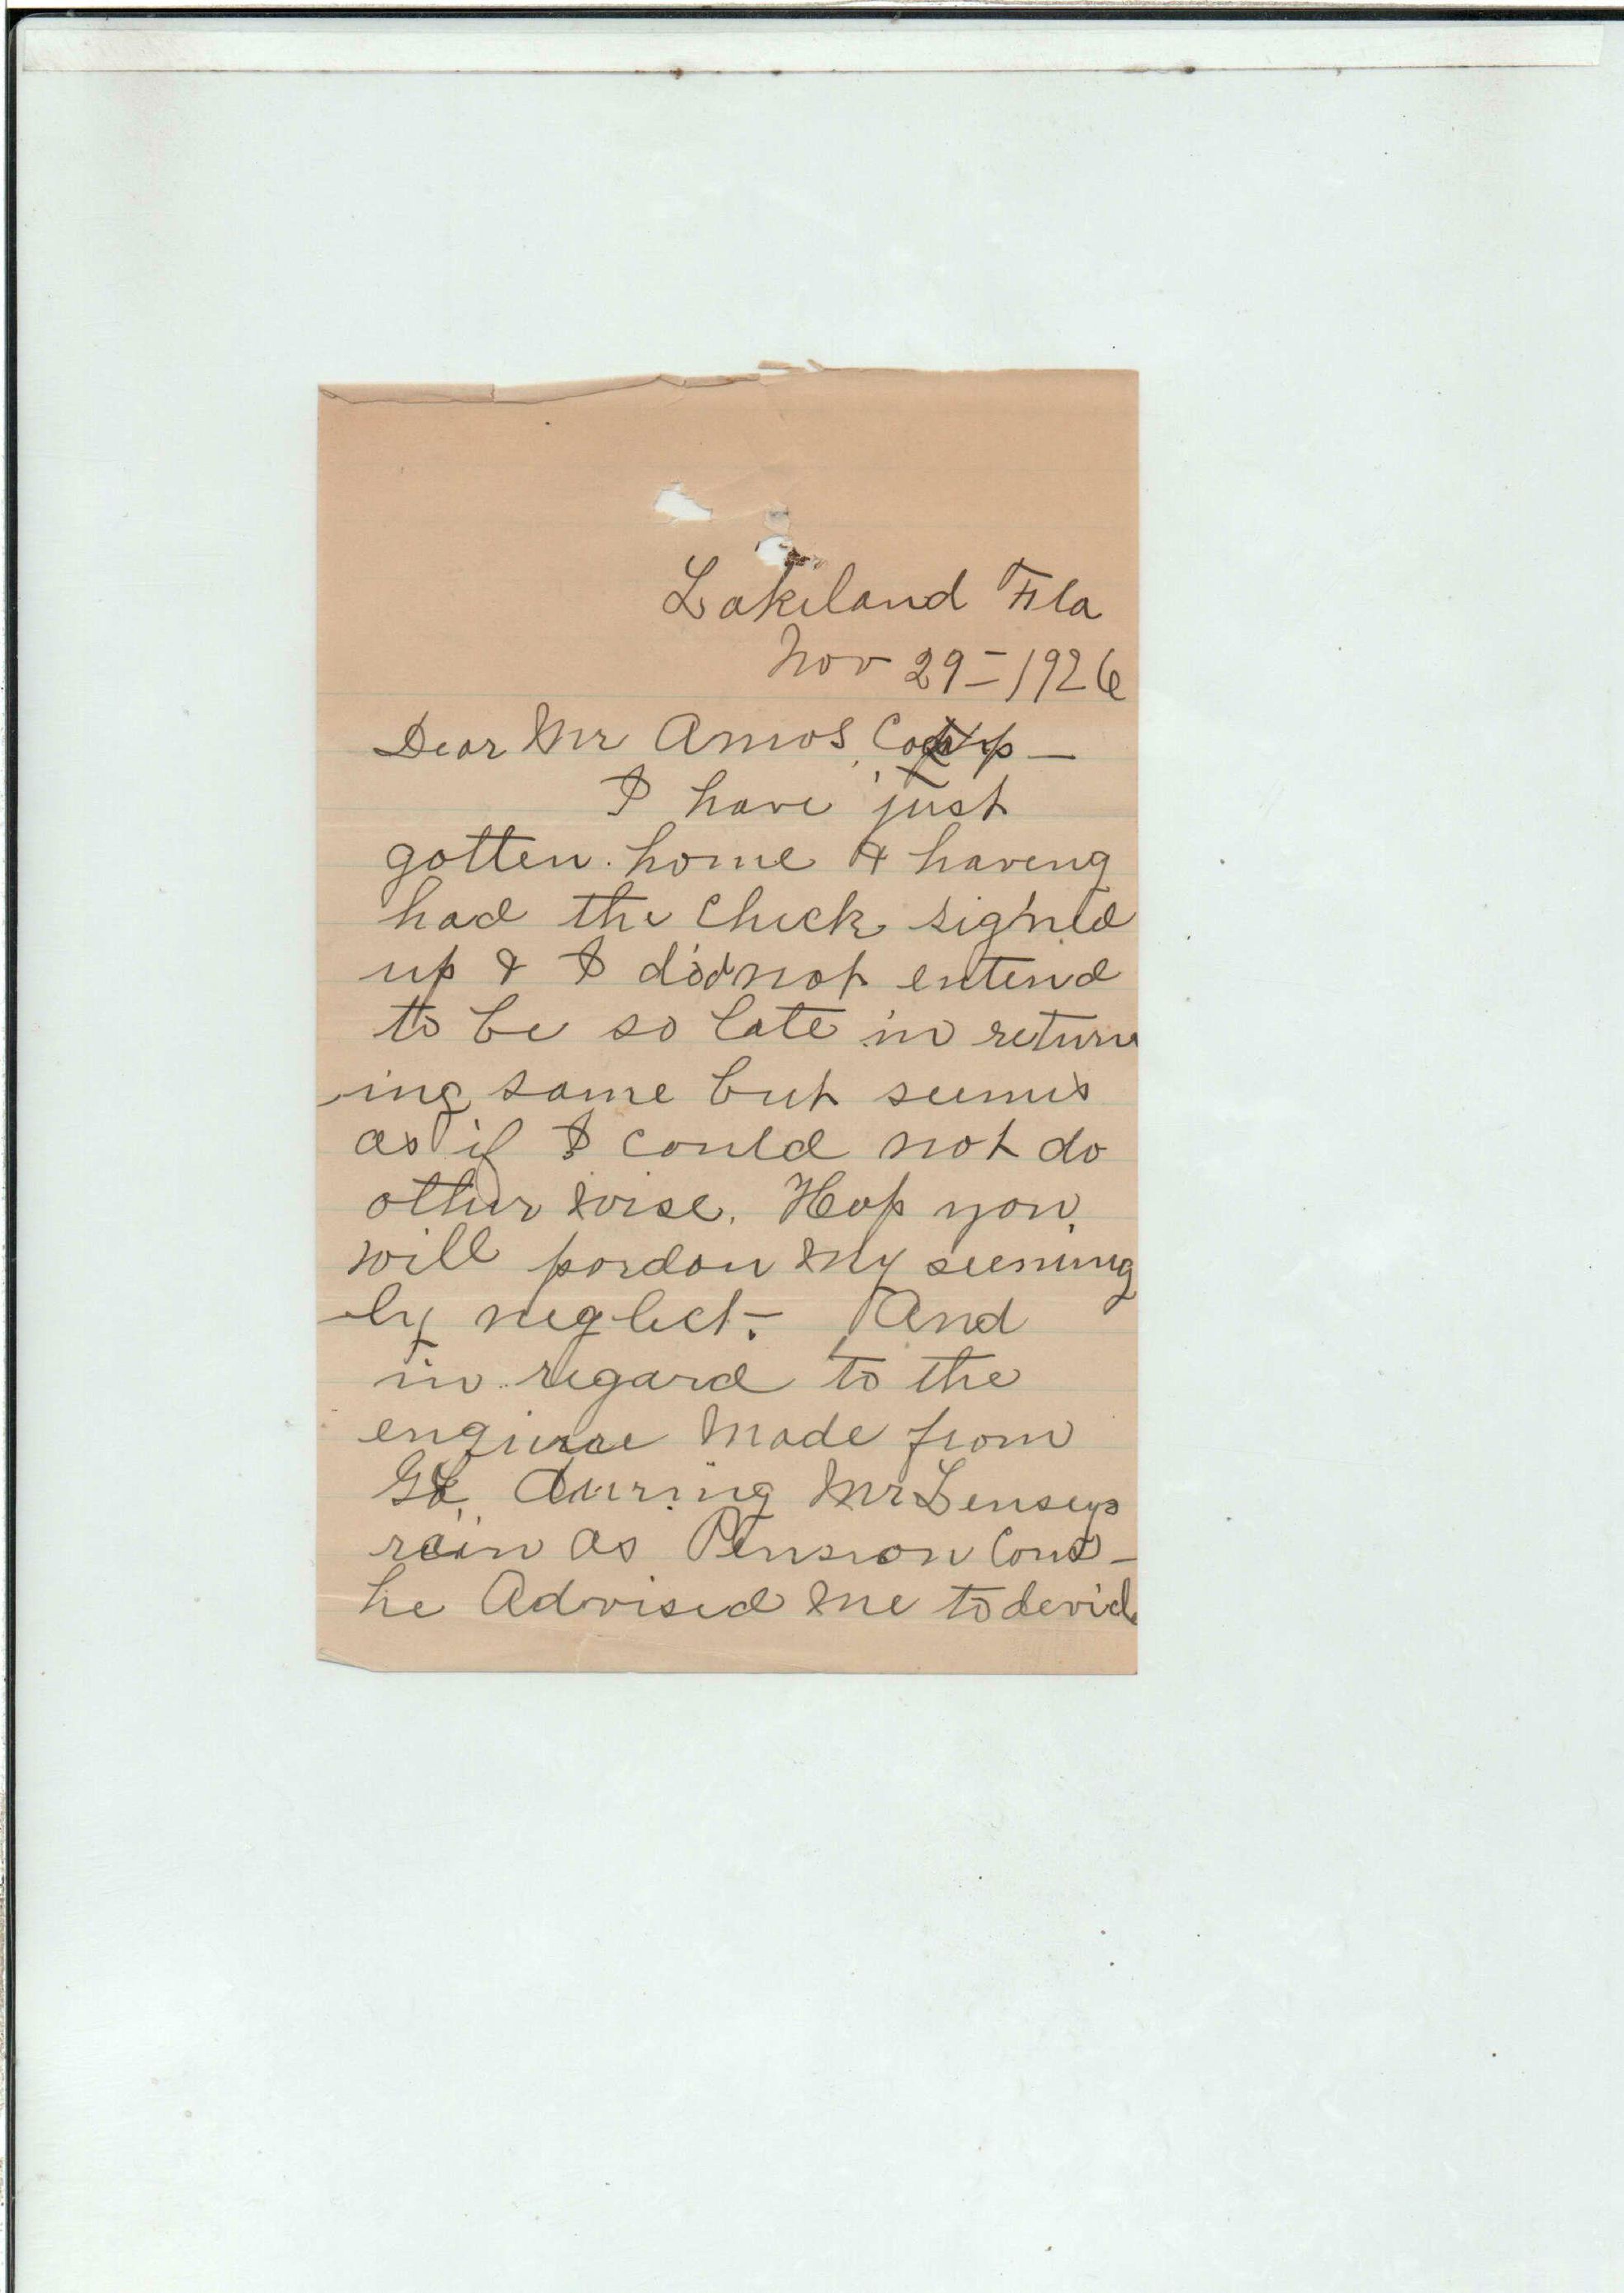 Lakeland Fla
Nov 29-1926
Dear Mr Amos,
I have just
gotten home & haveng
had the Check signed
up & I did not entend
to be so late in return
ing same but seems
as if I could not do
other wise. Hop you
will pardon my seeming
ly neglect- And
in regard to the
made from
Ga. during Mr Lenseys
rain as Pension Com-
he Advised me to devid